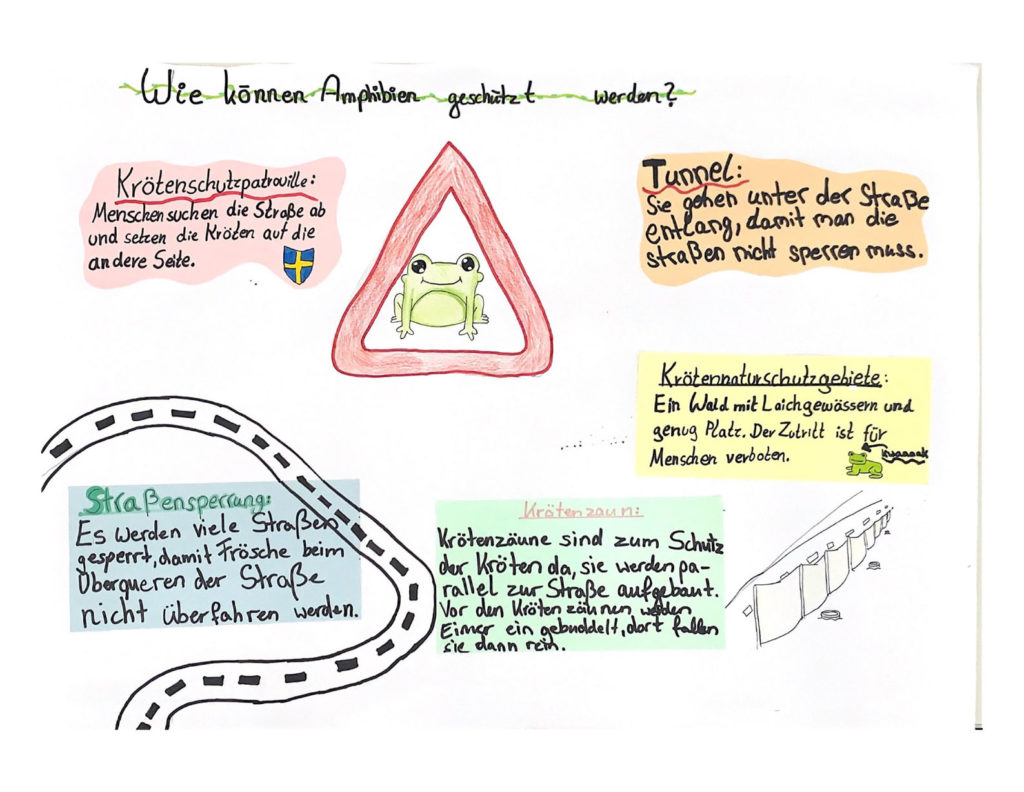 Wie können Amphibien geschützt werden?
Krötenschutzpatrouille:
Menschen suchen die Straße ab
und setzen die Kröten auf die
andere Seite.
Tunnel:
Sie gehen unter der Straße
entlang, damit man die
straßen nicht sperren muss.
Krötennaturschutzgebiete:
Ein Wald mit Laichgewässern und
genug Platz. Der Zutritt ist für
Menschen verboten.
Kwaaaak
Straßensperrung:
Es werden viele Straßen
gesperrt, damit Frösche beim
Überqueren der Straße
nicht überfahren werden.
Krötenzaun:
Krötenzäune sind zum Schutz
der Kröten da, sie werden pa-
rallel zur Straße aufgebaut.
Vor den Krötenzäunen, werden
Eimer ein gebuddelt, dort fallen
sie dann rein.